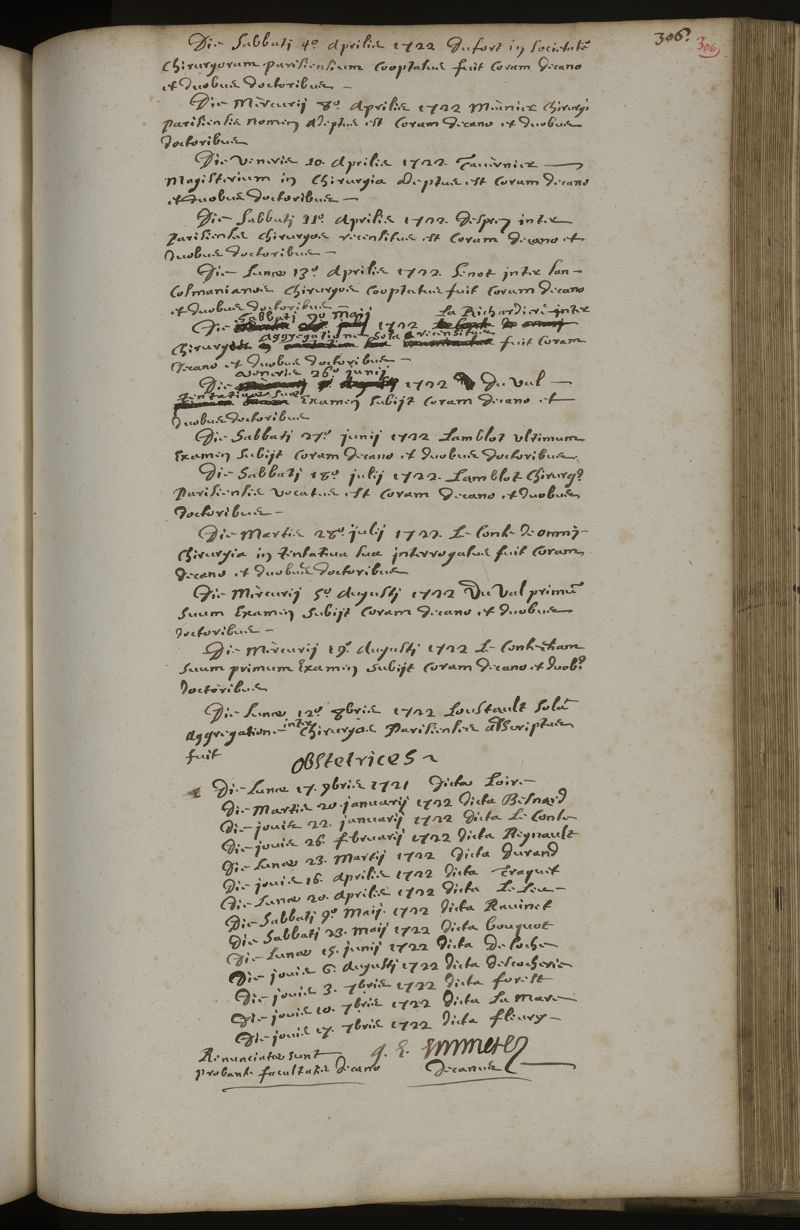 306. 306
Die Sabbatj 4º Aprilis 1722 Dufort in Societatē
Chirurgorum parisiensium Cooptatus fuit Coram decano
et duobus doctoribus –
Die Mercurij 8º Aprilis 1722 Meūnier Chirurgi
parisiensis nomen Adeptus est Coram decano et duobus
doctoribus
Die Veneris 10. Aprilis 1722. Tavernier —
Magisterium in Chirurgia Adeptus est Coram decano
et duobus doctoribus –
Die Sabbatj 11º Aprilis 1722. Desprez inter
parisienses Chirurgos recensitus est Coram decano et
duobus doctoribus –
Die Lunæ 13º Aprilis 1722. Senot inter San-
Cosmanianos Chirurgos Cooptatus fuit Coram decano
et duobus doctoribus
Die Sabbatj 9º Maij 1722 La Richardiere inter
Chirurgos Aggregatione Sola recensitus fuit Coram
decano et duobus doctoribus –
Die Veneris 26º junij 1722 Du Val –
tentativæ suæ Examen Subijt Coram decano et
duobus doctoribus
Die Sabbatj 27º junij 1722 Lamblot Ultimum
Examen Subijt Coram decano et duobus doctoribus.
Die Sabbatj 18º julij 1722. Lamblot Chirurgº
Parisiensis Vocatus est Coram decano et duobus
doctoribus –
Die Martis 28º julij 1722. Le Conte de omni
Chirurgia in tentativa sua interrogatus fuit Coram
decano et duobus doctoribus
Die Mercurij 5º Augustj 1722 Du Val primū
Suum Examen Subijt Coram decano et duobus
doctoribus –
Die Mercurij 19º Augustj 1722 Le Conte etiam
Suum primum Examen Subijt Coram decano et duobº
doctoribus
Die Lunæ 12º 8bris 1722 Loustault Solā
Aggregatione inter Chirurgos Parisienses adscriptus
fuit
Obstetrices
Die Lunæ 17. 9bris 1721 dicta Loire
Die Martis 20. januarij 1722 dicta Besnard
Die jovis 22. januarij 1722 dicta Le Conte
Die jovis 26. februarij 1722 dicta Regnault
Die Lunæ 23. Martij 1722 dicta Durand
Die jovis 16. Aprilis 1722 dicta Traquet
Die Lunæ 20. Aprilis 1722 dicta Le Leu –
Die Sabbatj 9º Maij. 1722 dicta Ravinet
Die Sabbatj 23. maij 1722 dicta bouquot
Die Lunæ 15. junij 1722 dicta De Loche
Die jovis 6. Augustj 1722 dicta descocherie
Die jovis 3. 7bris 1722 dicta forest
Die jovis 10. 7bris 1722 dicta La Mare
Die jovis 17. 7bris 1722 dicta fleury –
Renunciatæ sunt
probante facultatis decano
decanus